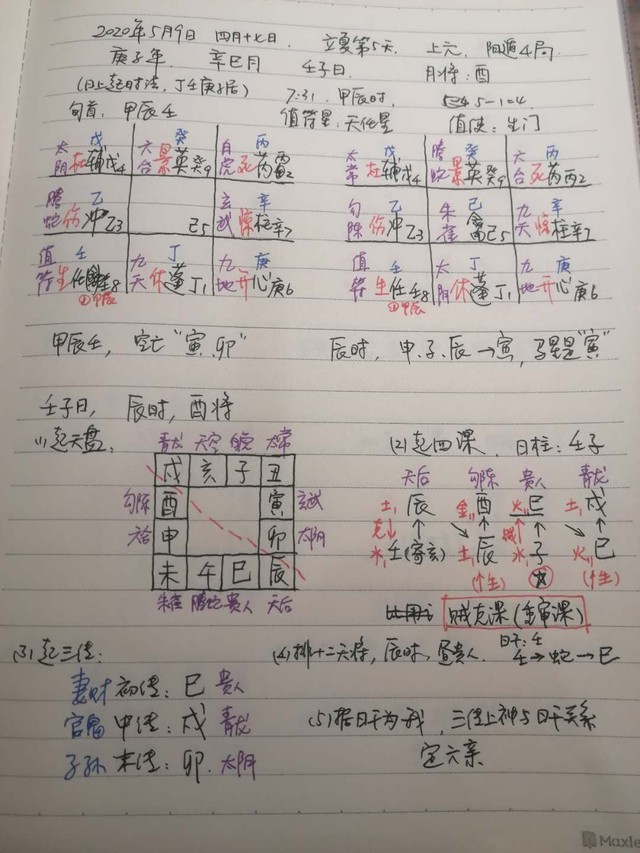 2020年5月9日 四月十七日. 立夏第5天. 上元. 阳遁4局.
庚子年. 辛巳月 壬子日. 月将:酉
(日上起时法,丁壬庚子居) 7:31. 甲辰时. 5-1=4.
旬首:甲辰壬 值符星:天任星 值使:生门
太 戊 六 癸 白 丙
阴 杜辅戊4 合 景英癸9 虎 死芮丙2
螣 乙 玄 辛
蛇 伤冲乙3 己5 武 惊柱辛7
值 壬 九 丁 九 庚
符 生任壬8 天 休蓬丁1 地 开心庚6
①甲辰
太 戊 螣 癸 六 丙
常 杜辅戊4 蛇 景英癸9 合 死芮丙2
勾 乙 朱 己 九 辛
陈 伤冲乙3 雀 禽己5 天 惊柱辛7
值 壬 太 丁 九 庚
符 生任壬8 阴 休蓬丁1 地 开心庚6
①甲辰
甲辰壬,空亡"寅.卯" 辰时,申.子.辰→寅,马星是"寅"
壬子日,辰时,酉将
(1)起天盘,
青龙 天空 白虎 太常
戌 亥 子 丑
勾陈 酉 寅 玄武
六合 申 卯 太阴
未 午 巳 辰
朱雀 螣蛇 贵人 天后
(2)起四课. 日柱:壬子
天后 勾陈 贵人 青龙
土 辰 金 酉 火 巳 土 戌
克 贼
水 壬(寄亥) 土 辰 水 子 火 巳
(↑生) (↑生)
比用: 贼克课(重审课)
(3)起三传:
妻财 初传:巳 贵人
官鬼 中传:戌 青龙
子孙 末传:卯. 太阴
(4)排十二天将,辰时,昼贵人. 日干:壬
壬→蛇→巳
(5)据日干为我,三传上神与日干关系
定六亲
Maxle